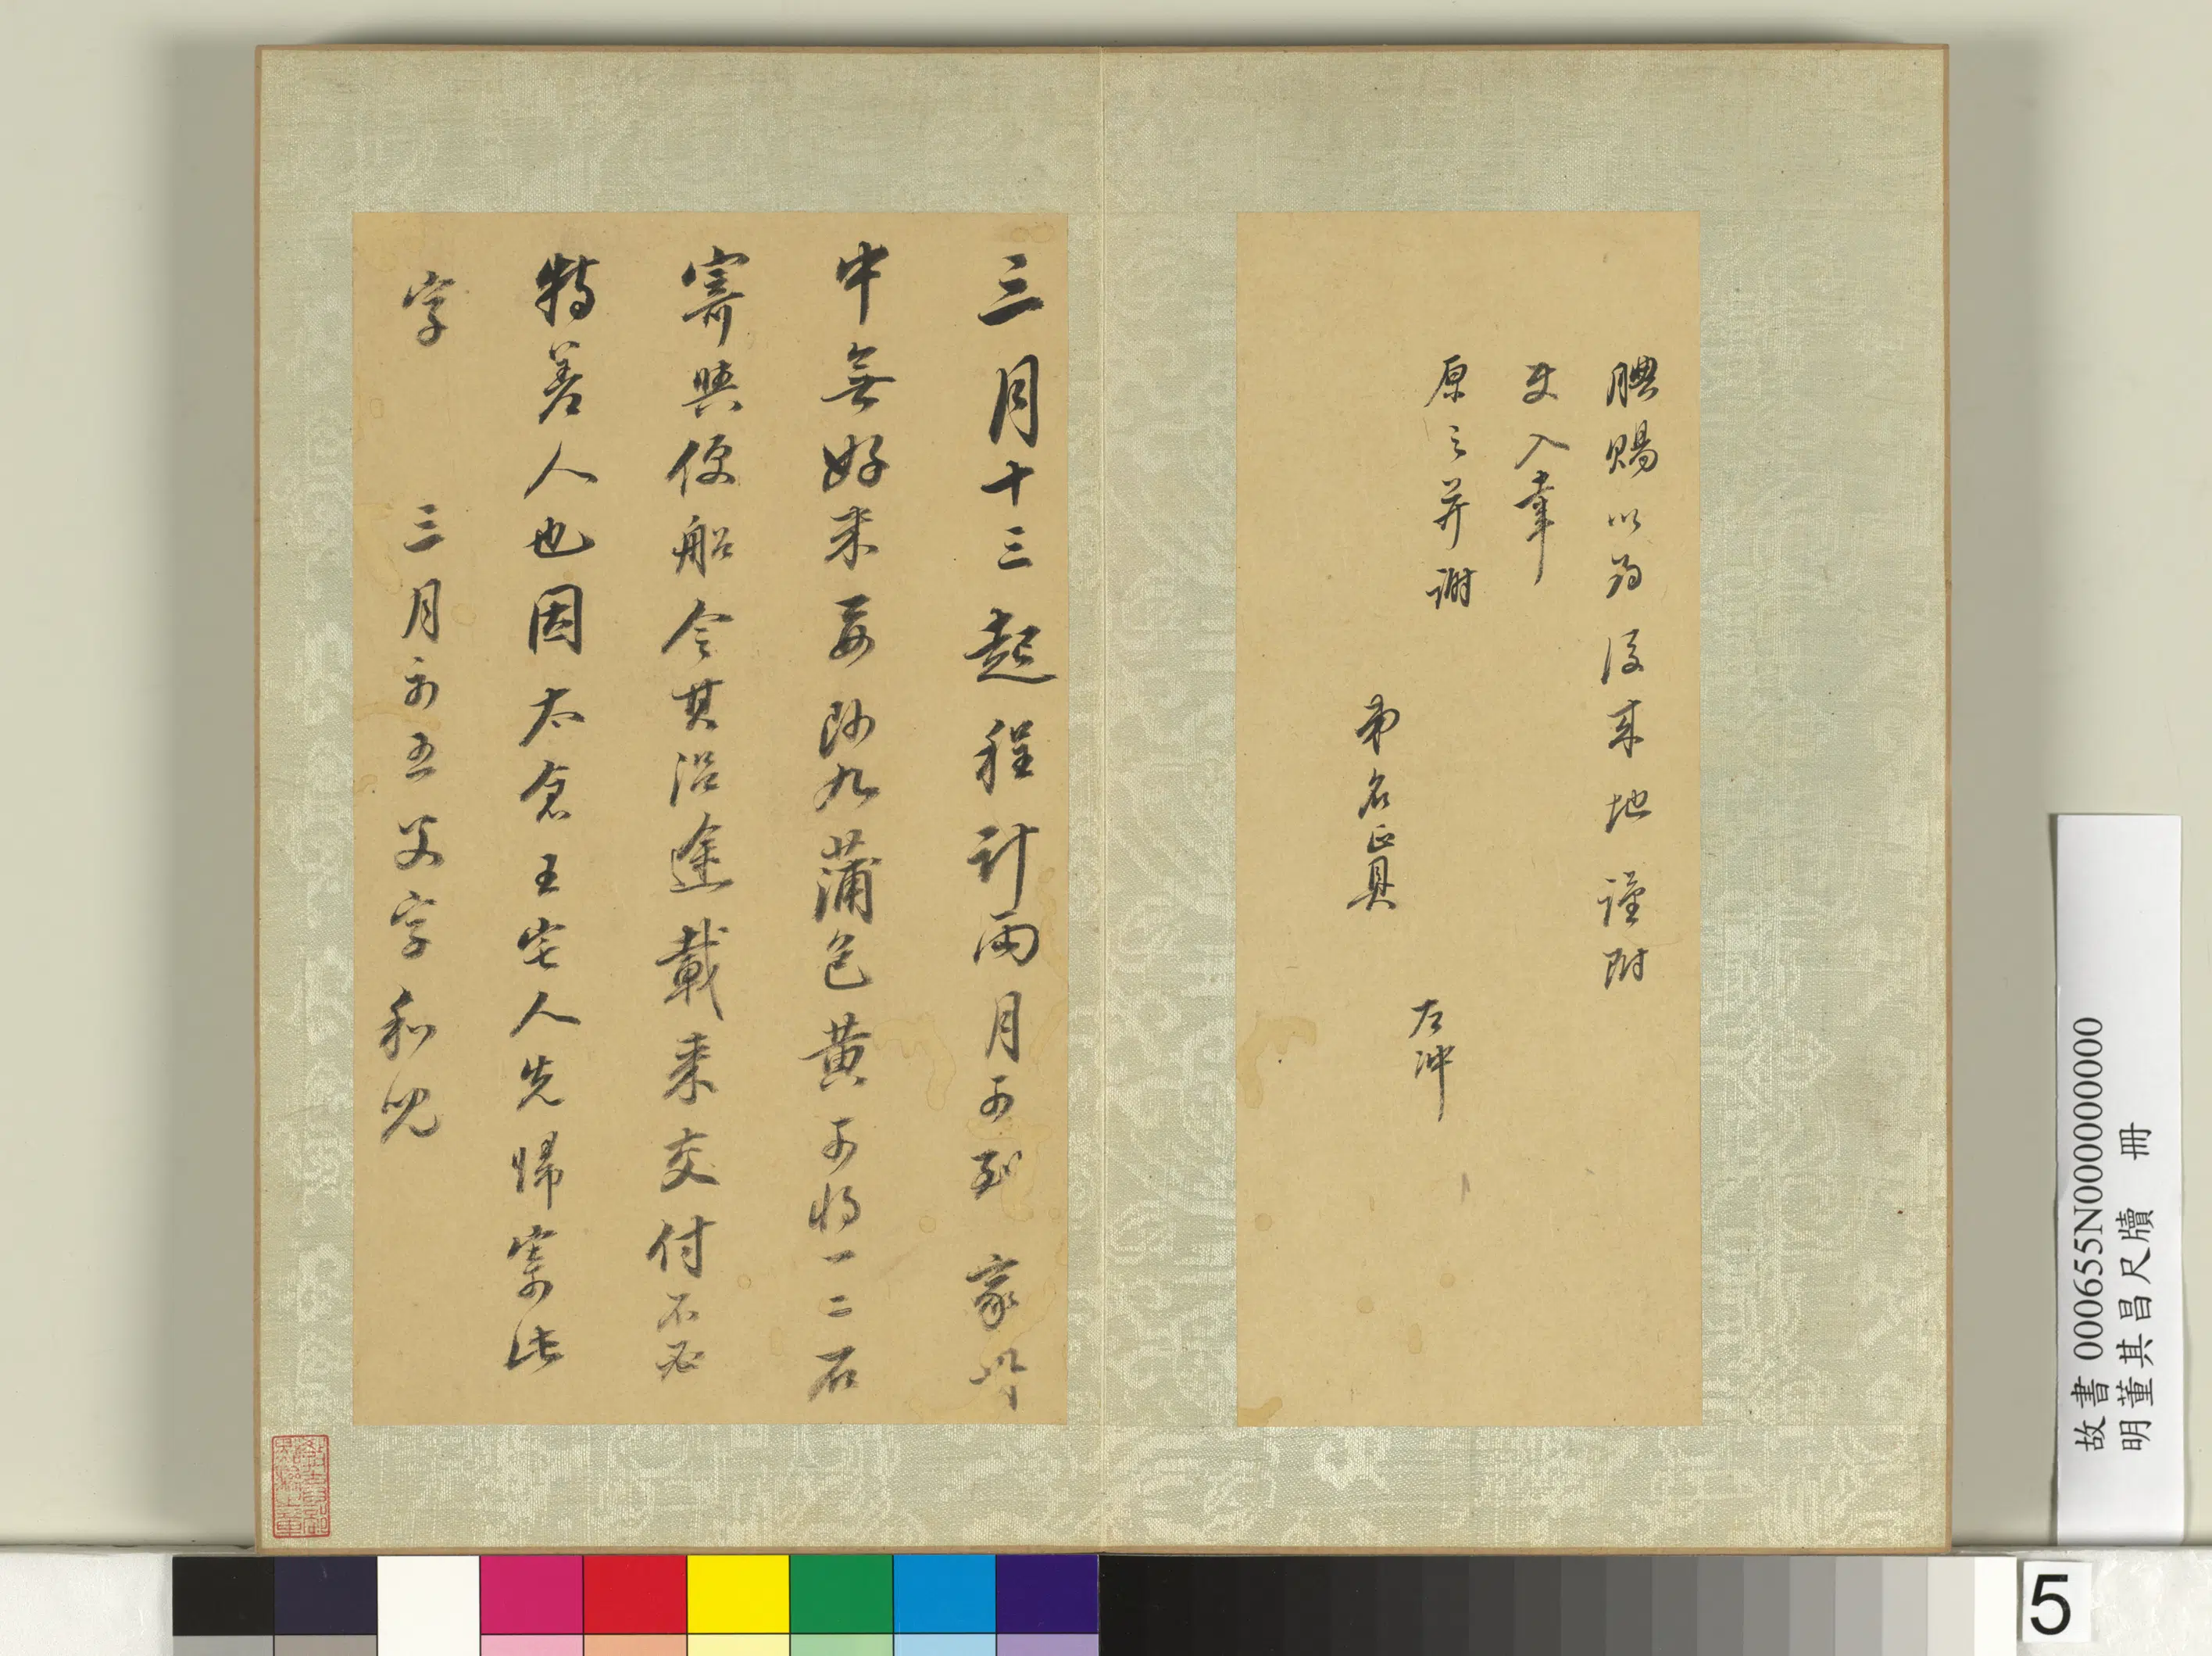 腆賜以為後來地謹附
使入幸
原之并謝
弟名正具
左沖
三月十三起程計兩月可到家此
中無好米要所九蒲包黃可將一二石
寄與便船令其沿途載來交付不必
特差人也因太倉王宅人先歸寄此
字　三月初五父字和兒
故書 000655N000000000
明董其昌尺牘　冊
5